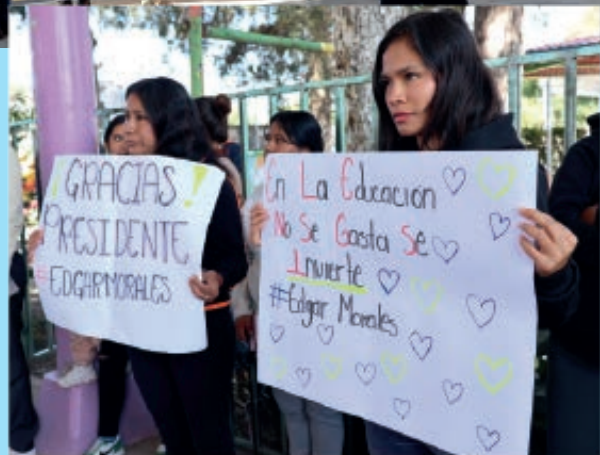 ¡GRACIAS!
PRESIDENTE
#EDGARMORALES
En La Educacion
No Se Gasta Se
Invierte
#Edgar Morales